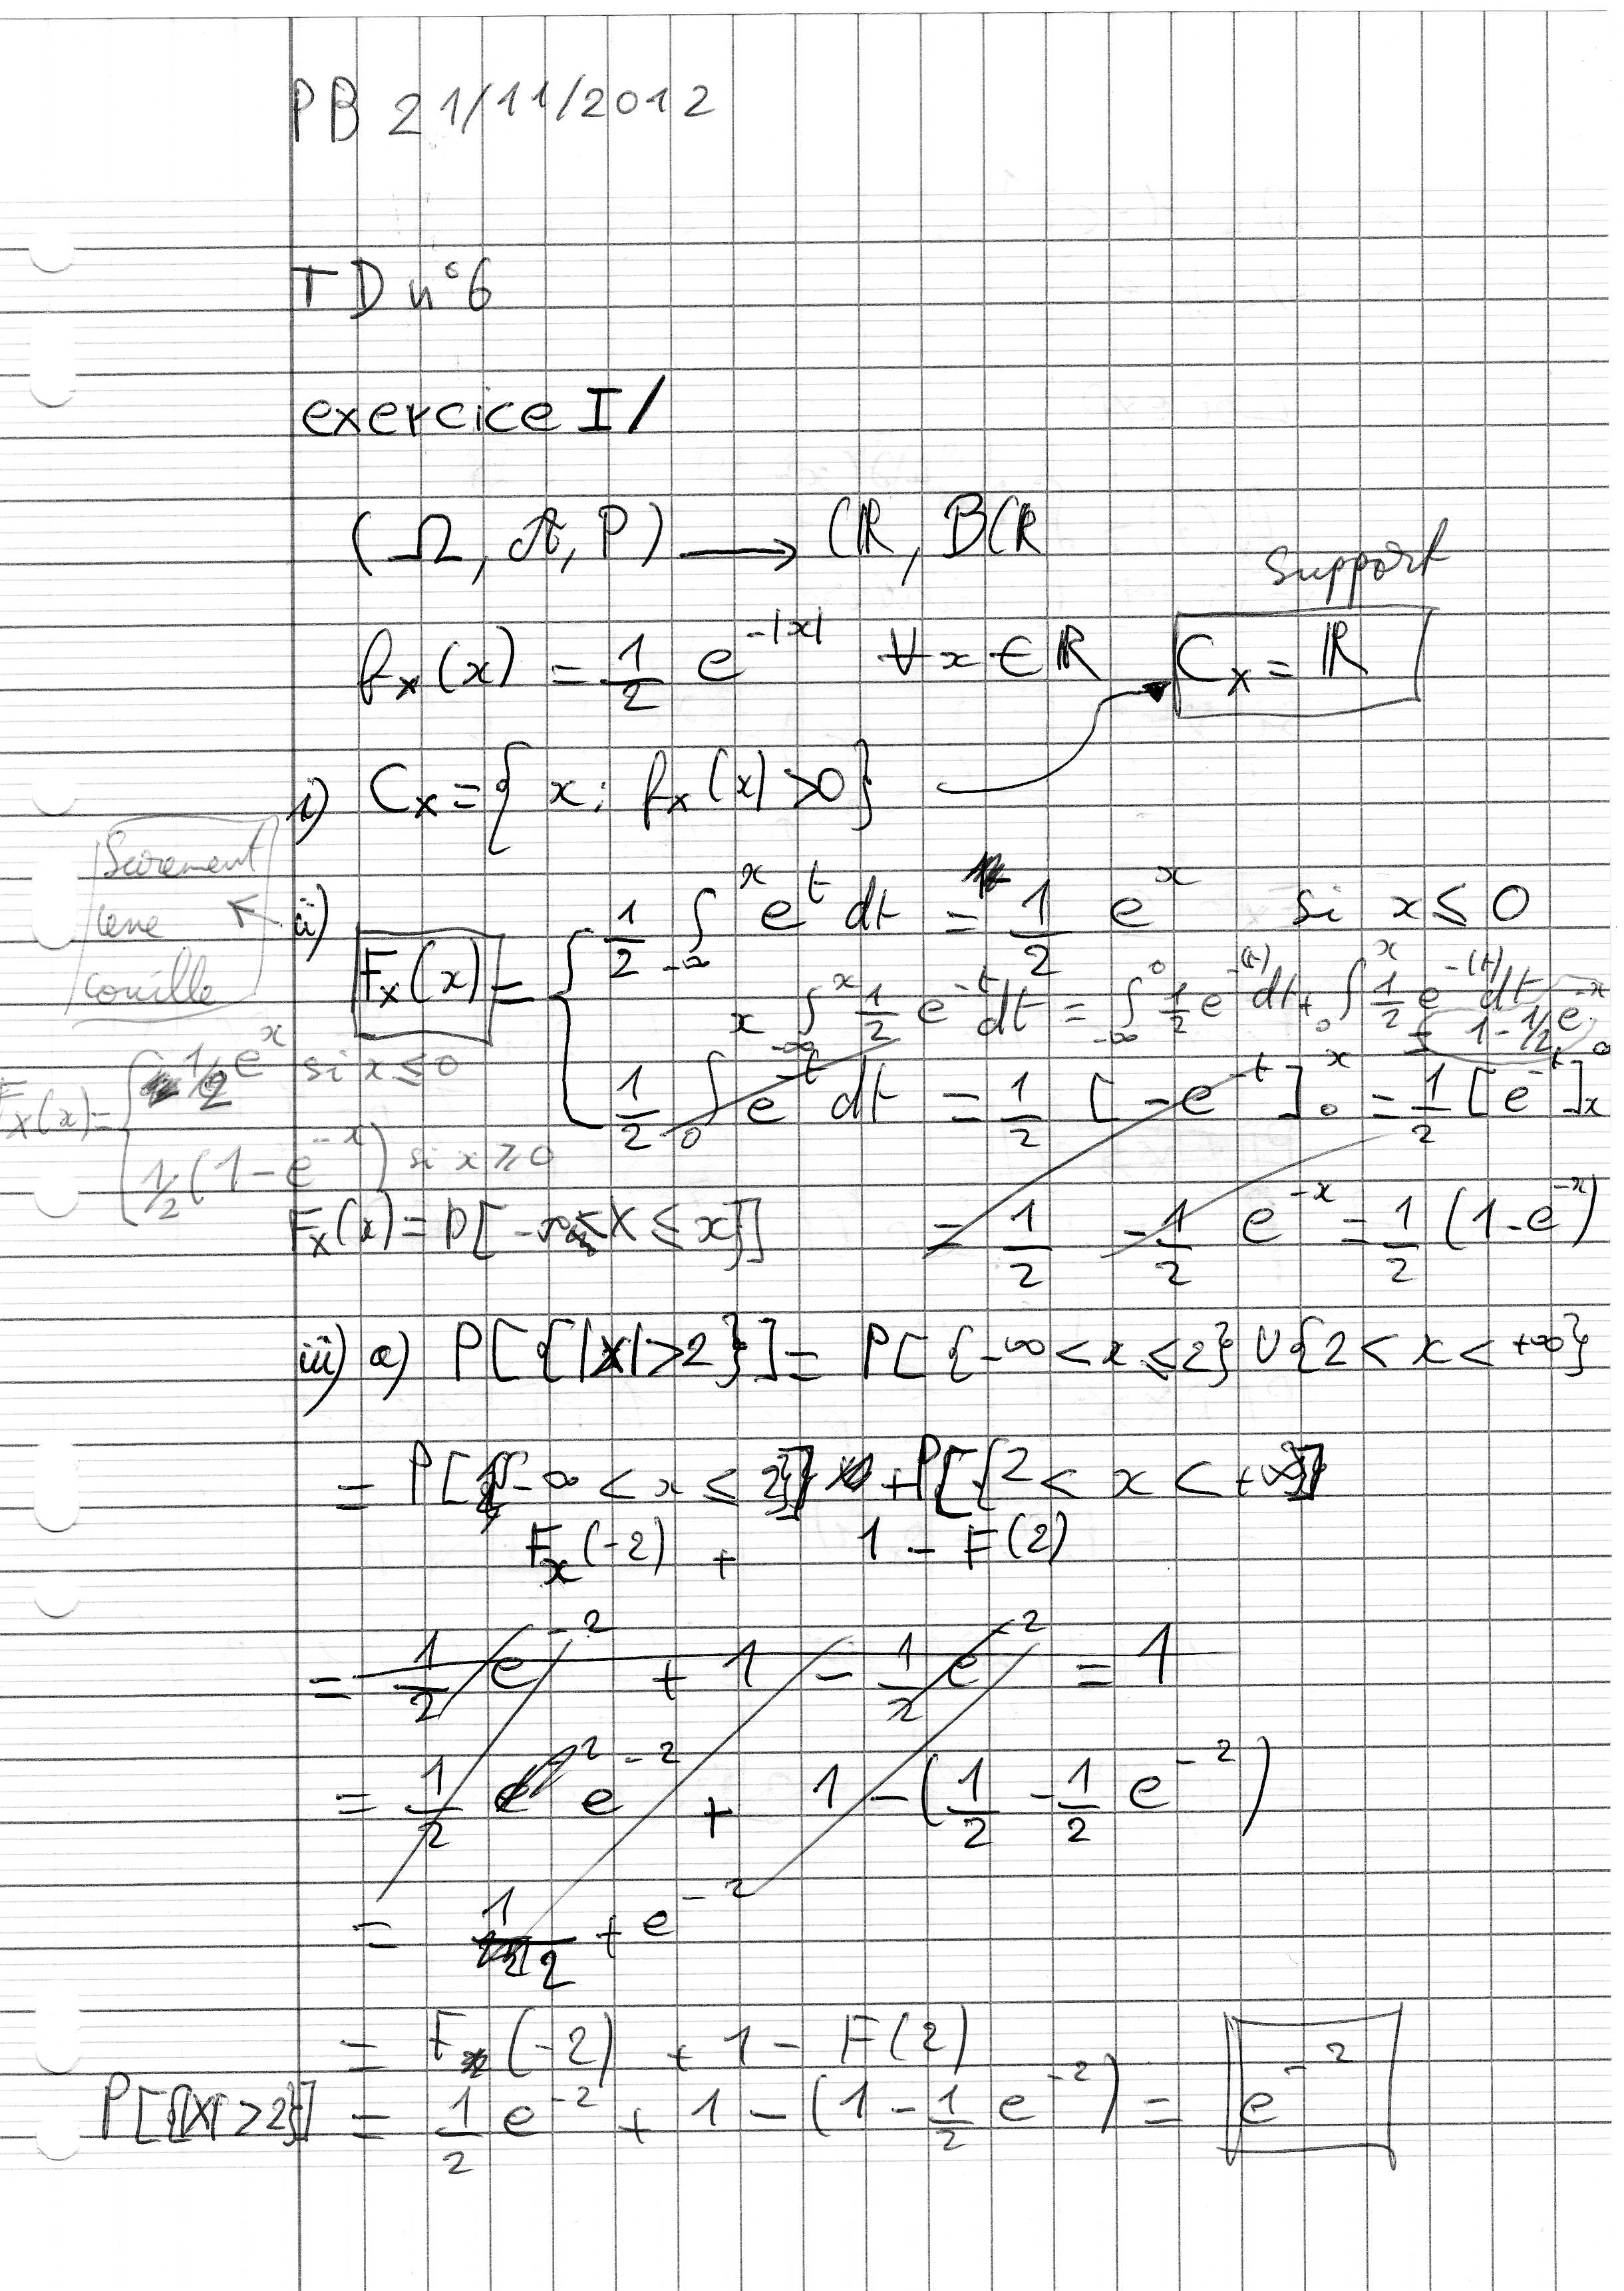 PB 21/11/2012
TD n°6
exercice I/
(Ω, A, P) ⟶ (ℝ, B(ℝ
support
f_X(x) = 1/2 e^{-|x|} ∀x ∈ ℝ C_X = ℝ
i) C_X = { x; f_X(x) > 0}
Surement
une
couille
ii) F_X(x) = { 1/2 ∫_{-∞}^{x} e^t dt = 1/2 e^x si x ≤ 0
x ∫_{-∞}^{x} 1/2 e^{-t} dt = ∫_{-∞}^{0} 1/2 e^{-(t)} dt + ∫_{0}^{x} 1/2 e^{-(t)} dt
= 1 - 1/2 e^{-x}
1/2 ∫_0 e^{-t} dt = 1/2 [-e^{-t}]_0^x = 1/2 [e^{-t}]_x^0
F_X(x) = { 1/2 e^x si x ≤ 0
1/2 (1 - e^{-x}) si x ≥ 0
F_X(x) = P[-∞ < X ≤ x}] = 1/2 - 1/2 e^{-x} = 1/2 (1 - e^{-x})
iii) a) P[{|X| > 2}] = P[{-∞ < x ≤ 2} ∪ {2 < x < +∞}
= P[{-∞ < x ≤ 2}] + P[{2 < x < +∞}]
F_X(-2) + 1 - F(2)
= 1/2 e^{-2} + 1 - 1/2 e^{-2} = 1
= 1/2 e^{-2} + 1 - (1/2 - 1/2 e^{-2})
= 1/2 + e^{-2}
= F_X(-2) + 1 - F(2)
P[{|X| > 2}] = 1/2 e^{-2} + 1 - (1 - 1/2 e^{-2}) = e^{-2}